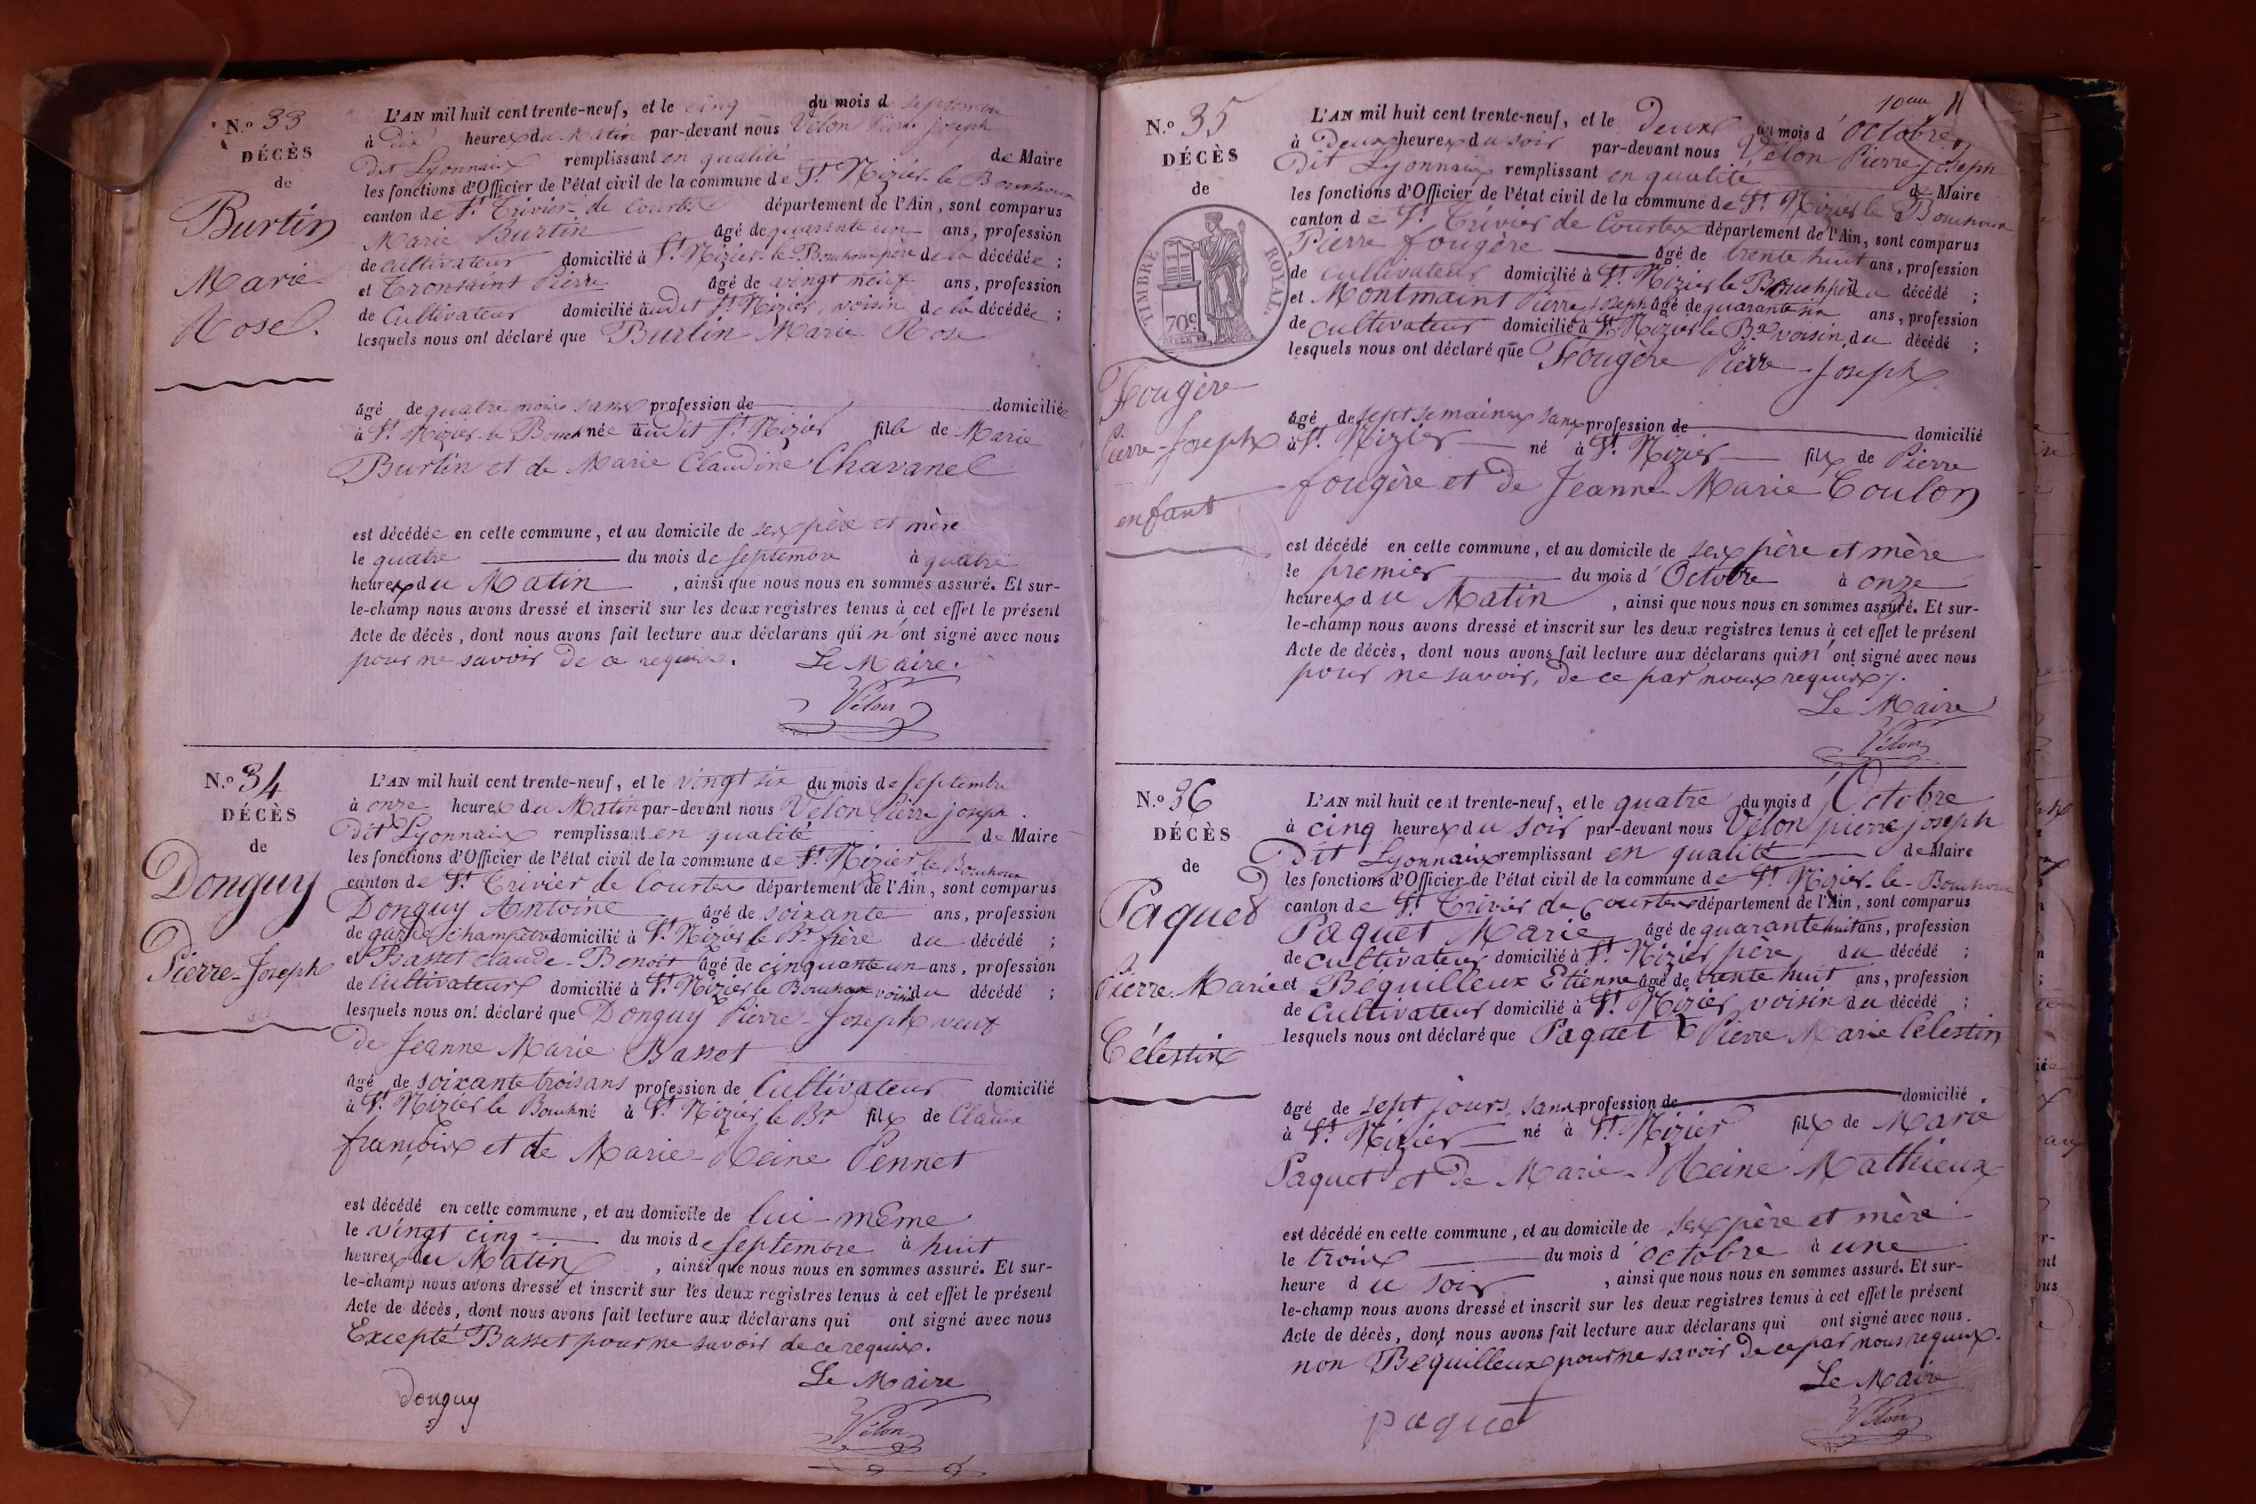 N.º 33
DÉCÈS
de
Burtin
Marie
Rose.
L'AN mil huit cent trente-neuf, et le cinq du mois de septembre
à dix heures du Matin par-devant nous Vélon Pierre Joseph
dit Lyonnais remplissant en qualité de Maire
les fonctions d'Officier de l'état civil de la commune de St Nizier le Bouchoux
canton de St Trivier de Courtes département de l'Ain, sont comparus
Marie Burtin âgé de quarante un ans, profession
de cultivateur domicilié à St Nizier le Bouchoux père de la décédée ;
et Trontaint Pierre âgé de vingt neuf ans, profession
de Cultivateur domicilié audit St Nizier, voisin de la décédée ;
lesquels nous ont déclaré que Burtin Marie Rose
âgé de quatre mois sans profession de domiciliée
à St Nizier le Bouch née audit St Nizier fille de Marie
Burtin et de Marie Claudine Chavanel
est décédée en cette commune, et au domicile de ses père et mère
le quatre du mois de septembre à quatre
heures du Matin, ainsi que nous nous en sommes assuré. Et sur-
le-champ nous avons dressé et inscrit sur les deux registres tenus à cet effet le présent
Acte de décès, dont nous avons fait lecture aux déclarans qui n'ont signé avec nous
pour ne savoir de ce requis. Le Maire.
Vélon
N.º 34
DÉCÈS
de
Donguy
Pierre-Joseph
L'AN mil huit cent trente-neuf, et le vingt six du mois de septembre
à onze heures du Matin par-devant nous Vélon Pierre joseph
dit Lyonnais remplissant en qualité de Maire
les fonctions d'Officier de l'état civil de la commune de St Nizier le Bouchoux
canton de St Trivier de Courtes département de l'Ain, sont comparus
Donguy Antoine âgé de soixante ans, profession
de garde champetre domicilié à St Nizier le Bx frère du décédé ;
et Basset claude-Benoit âgé de cinquante un ans, profession
de Cultivateur domicilié à St Nizier le Bouchoux voisin du décédé ;
lesquels nous ont déclaré que Donguy Pierre-Joseph veuf
de Jeanne Marie Basset
âgé de soixante trois ans profession de Cultivateur domicilié
à St Nizier le Bouch né à St Nizier le Bx fils de Claude
françois et de Marie-Reine Pennet
est décédé en cette commune, et au domicile de lui-même
le vingt cinq du mois de septembre à huit
heures du Matin, ainsi que nous nous en sommes assuré. Et sur-
le-champ nous avons dressé et inscrit sur les deux registres tenus à cet effet le présent
Acte de décès, dont nous avons fait lecture aux déclarans qui ont signé avec nous
Excepté Basset pour ne savoir de ce requis.
Le Maire
donguy
Vélon
10eme
N.º 35
DÉCÈS
de
TIMBRE ROYAL
70c
Fougère
Pierre-Joseph
enfant
L'AN mil huit cent trente-neuf, et le deux du mois d'Octobre
à Deux heures du soir par-devant nous Vélon Pierre Joseph
dit Lyonnais remplissant en qualité de Maire
les fonctions d'Officier de l'état civil de la commune de St Nizier le Bouchoux
canton de St Trivier de Courtes département de l'Ain, sont comparus
Pierre fougère âgé de trente huit ans, profession
de cultivateur domicilié à St Nizier le Bouch père du décédé ;
et Montmaint Pierre joseph âgé de quarante six ans, profession
de cultivateur domicilié à St Nizier le Bx voisin du décédé ;
lesquels nous ont déclaré que Fougère Pierre-Joseph
âgé de sept semaines sans profession de domicilié
à St Nizier né à St Nizier fils de Pierre
fougère et de Jeanne Marie Coulon
est décédé en cette commune, et au domicile de ses père et mère
le premier du mois d'Octobre à onze
heures du Matin, ainsi que nous nous en sommes assuré. Et sur-
le-champ nous avons dressé et inscrit sur les deux registres tenus à cet effet le présent
Acte de décès, dont nous avons fait lecture aux déclarans qui n'ont signé avec nous
pour ne savoir, de ce par nous requis.
Le Maire
Vélon
N.º 36
DÉCÈS
de
Paquet
Pierre Marie
Célestin
L'AN mil huit cent trente-neuf, et le quatre du mois d'Octobre
à cinq heures du soir par-devant nous Vélon pierre joseph
dit Lyonnais remplissant en qualité de Maire
les fonctions d'Officier de l'état civil de la commune de St Nizier-le-Bouchoux
canton de St Trivier de Courtes département de l'Ain, sont comparus
Paquet Marie âgé de quarante huit ans, profession
de cultivateur domicilié à St Nizier père du décédé ;
et Béquilleux Etienne âgé de trente huit ans, profession
de Cultivateur domicilié à St Nizier voisin du décédé ;
lesquels nous ont déclaré que Paquet Pierre Marie Célestin
âgé de sept jours, sans profession de domicilié
à St Nizier né à St Nizier fils de Marie
Paquet et de Marie-Reine Mathieux
est décédé en cette commune, et au domicile de ses père et mère
le trois du mois d'octobre à une
heure du soir, ainsi que nous nous en sommes assuré. Et sur-
le-champ nous avons dressé et inscrit sur les deux registres tenus à cet effet le présent
Acte de décès, dont nous avons fait lecture aux déclarans qui ont signé avec nous.
non Béquilleux pour ne savoir de ce par nous requis.
Le Maire
paquet
Vélon